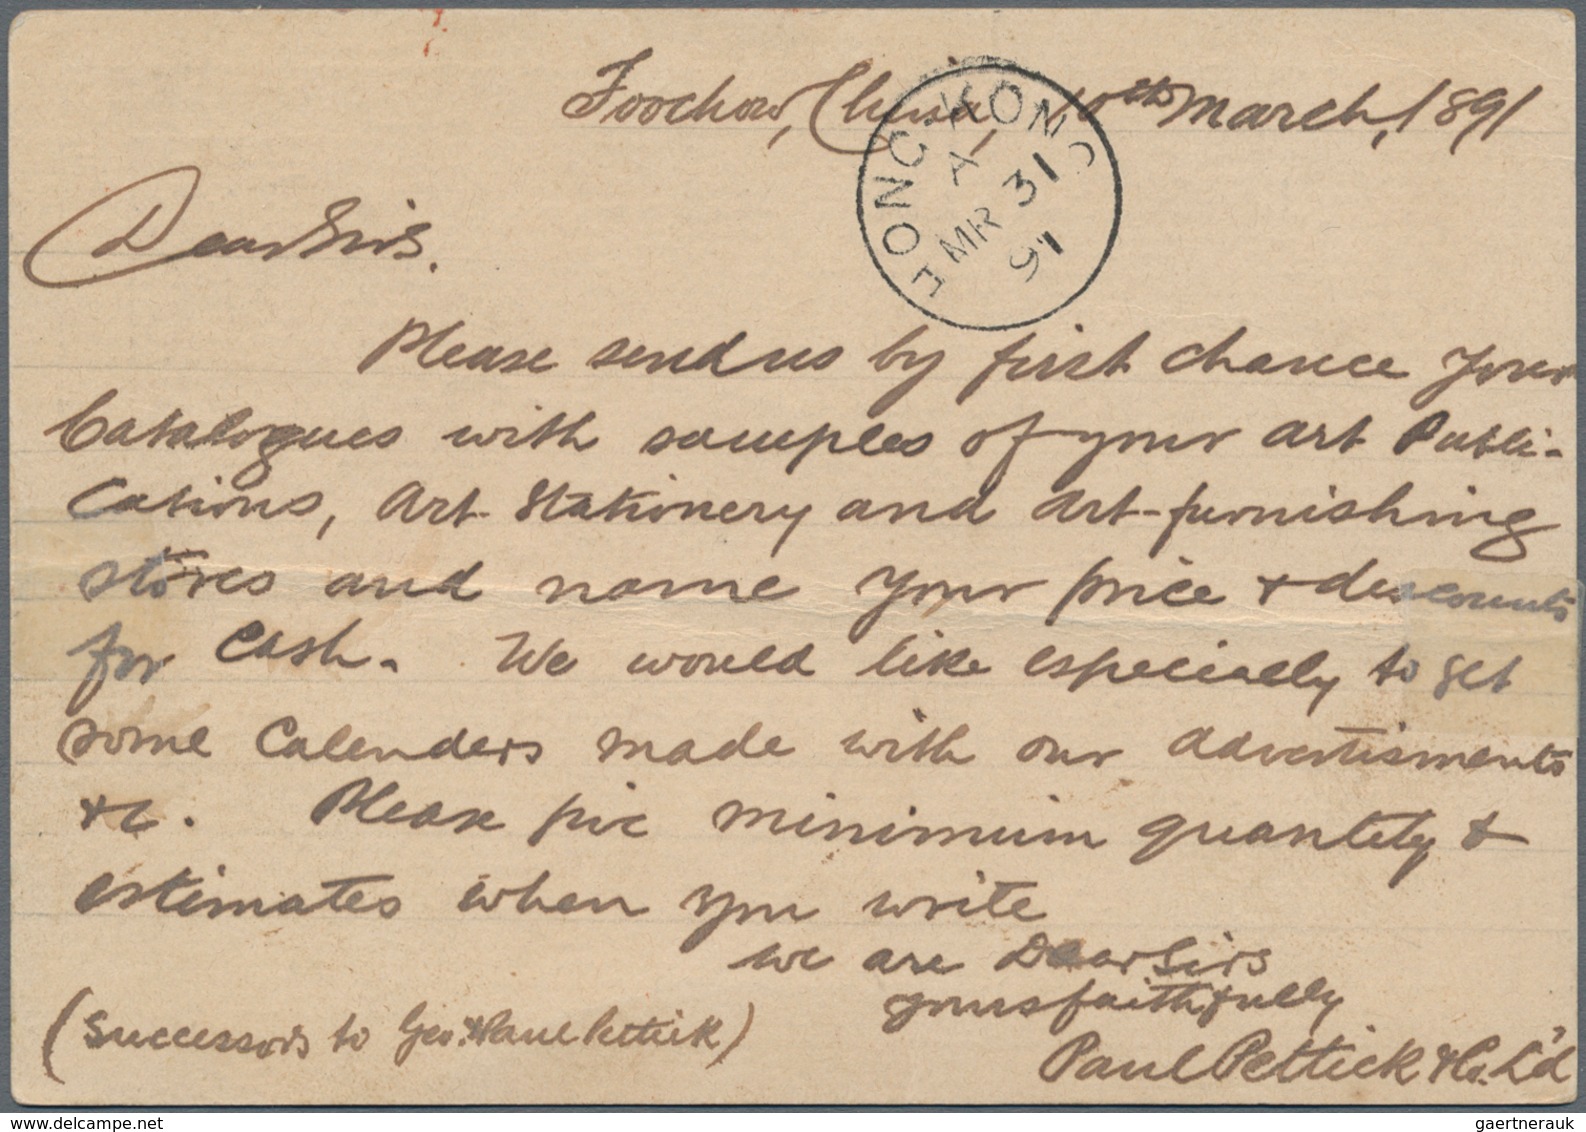 Foochow, China, 10th March, 1891
HONG-KONG
A
MR 31
91
Dear Sirs.
Please send us by first chance your
Catalogues with samples of your art Publi-
cations, Art-Stationery and Art-furnishing
stores and name your price & discounts
for Cash. We would like especially to get
some Calenders made with our advertisments
&c. Please giv minimum quantity &
estimates when you write
We are Dear Sirs
yours faithfully
(Successors to Geo. & Paul Pettick)
Paul Pettick & Co. L'd
delcampe.net
gaertnerauk